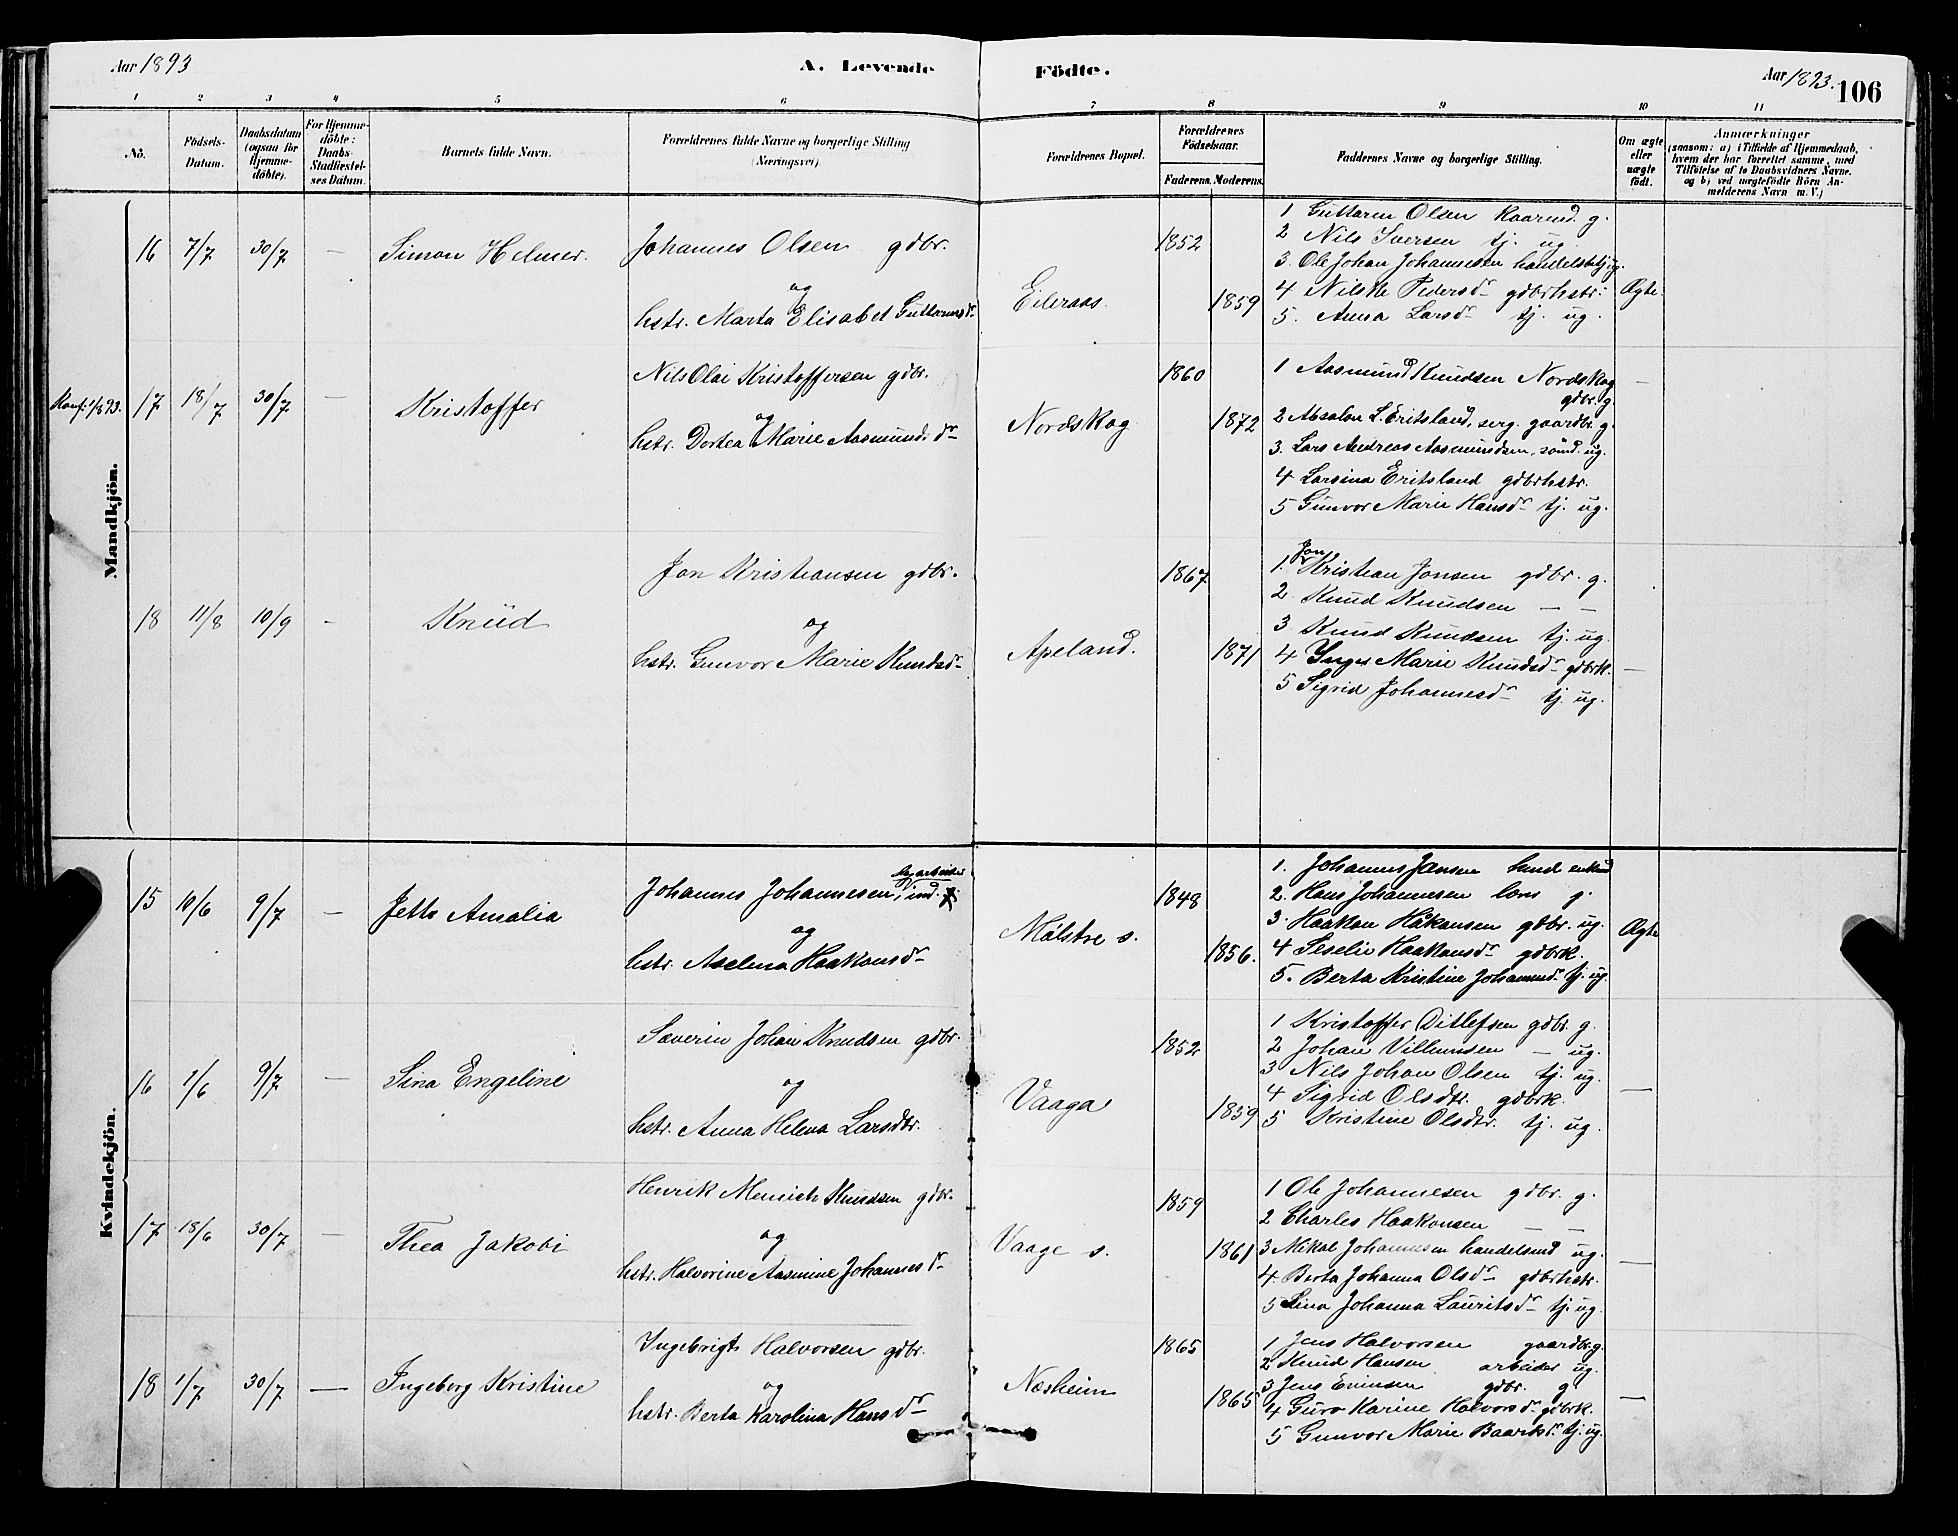 Aar 1893 A. Levende Födte. Aar 1893. 106
1 2 3 4 5 6 7 8 9 10 11
Nö.
Födsels-Datum.
Daabsdatum (ogsaa för Hjemme-döbte).
For Hjemme-döbte: Daabs-Stadfæstel-ses Datum.
Barnets fulde Navn.
Forældrenes fulde Navne og borgerlige Stilling
(Næringsvei).
Forældrenes Bopæl.
Forældrenes Födselsaar.
Faderens. Moderens.
Faddernes Navne og borgerlige Stilling.
Om ægte eller uægte födt.
Anmærkninger
(saasom: a) i Tilfælde af Hjemmedaab,
hvem der har forrettet samme, med
Tilföielse af to Daabsvidners Navne.
og b) ved uægtefödte Börn An-
melderens Navn m. V.)
Mandkjön.
16 7/7 30/7 — Simon Helmer.
Johannes Olsen gdbr.
og
hstr. Marta Elisabet Guttormsdr
Eileraas. 1852 1859
1 Guttorm Olsen kaarmd. g.
2 Nils Iversen tj. ug.
3. Ole Johan Johannesen handelsbetj. ug.
4 Nilske Pedersdr gdbrhstr.
5. Anna Larsdr tj. ug.
Ægte.
Konf. 1/893. 17 18/7 30/7 — Kristoffer
Nils Olai Kristoffersen gdbr.
og
hstr. Dortea Marie Aasmundsdr
Nordskog 1860 1872
1 Aasmund Knudsen Nordskog
gdbr. g.
2 Absalon L. Eritsland, serg. gaardbr. g.
3. Lars Andreas Aasmundsen, sömd. ug.
4 Larsina Eritsland gdbrhstr.
5 Gunvor Marie Hansdr tj. ug.
—
18 11/8 10/9 - Knud
Jon Kristiansen gdbr.
og
hstr. Gunvor Marie Knudsdr
Apeland. 1867 1871
Jon
1. Kristian Jonsen gdbr. g.
2 Knud Knudsen — —
3 Knud Knudsen tj. ug.
4 Inger Marie Knudsdr gdbrk.
5 Sigrid Johannesdr tj. ug.
—
Kvindekjön.
15 10/6 9/7 — Jette Amalia
Johannes Johannesen, ind.
og
hstr. Aselena Haakonsdr
Mölstre s. 1848 1856.
1. Johannes Jansen
2. Hans Johannesen lods g.
3. Haakon Håkonsen gdbr. ug.
4 Seselie Haakonsdr gdbrk.
5. Berta Kristine Johannesdr tj. ug.
Ægte
16 1/6 9/7 — Sina Engeline
Severin Johan Knudsen gdbr.
og
hstr. Anna Helena Larsdtr.
Vaaga 1852 1859
1 Kristoffer Ditlefsen gdbr. g.
2 Johan Villumsen — ug.
3 Nils Johan Olsen tj. ug.
4 Sigrid Olsdtr. gdbrk.
5 Kristine Olsdtr. tj. ug.
—
17 18/6 30/7 — Thea Jakobi
Henrik Knudsen gdbr.
og
hstr. Halvorine Aasmine Johannesdr
Vaage s. 1859 1861
1 Ole Johannesen gdbr. g.
2 Charles Haakonsen — —
3 Mikal Johannesen handelsmd ug.
4. Berta Johanna Olsdr gdbrhstr.
5 Lina Johanna Lauritsdr tj. ug.
—
18 1/7 30/7 — Ingeborg Kristine
Ingebrigt Halvorsen gdbr.
og
hstr. Berta Karolina Hansdr
Næsheim 1865 1865
1 Jens Halvorsen gaardbr. g.
2 Knud Hansen arbeider ug.
3 Jens gdbr. g
4 Guro Karine Halvorsdr gdbrk.
5 Gunvor Marie Baardsdr tj. ug.
—